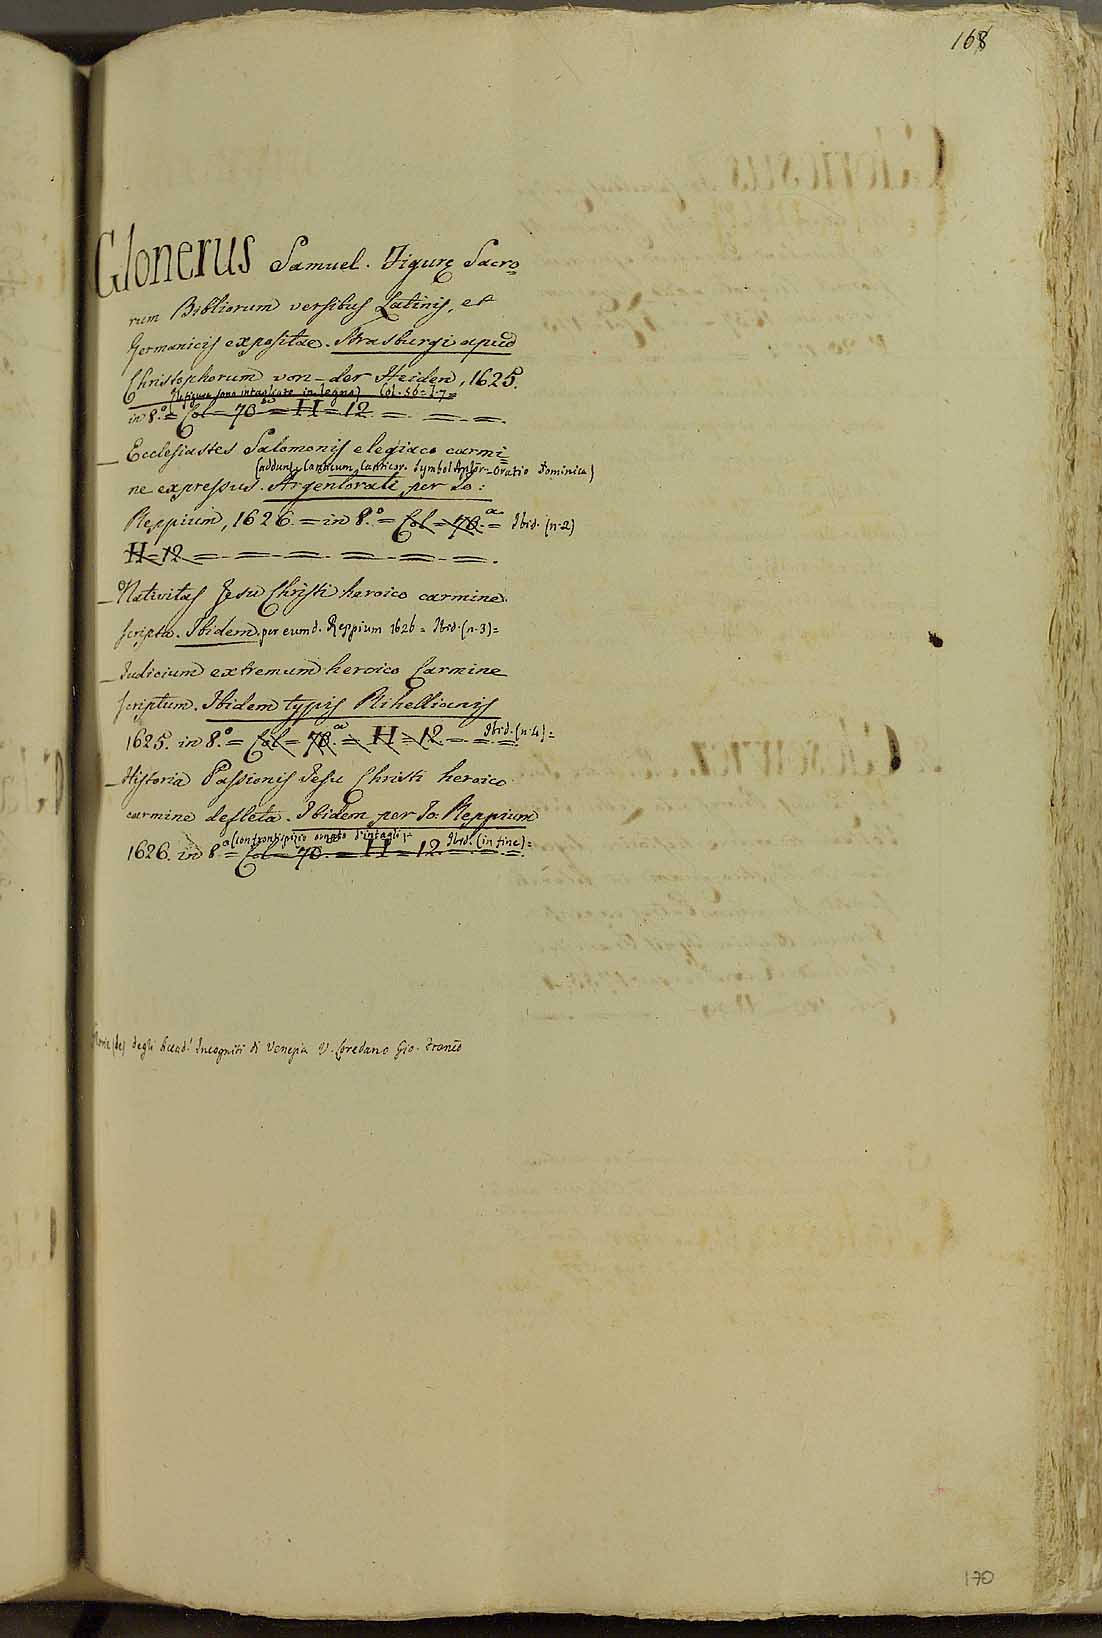 168
Glonerus Samuel. Figuræ Sacro=
rum Bibliorum versibus Latinis, et
Germanicis expositae. Strasburgi apud
Christophorum von-der Heiden, 1625.
(le figure sono intagliate in legno) Col. 56 = I. 7 =
in 8.º = Col = 70 = H = 12 = = = =.
_ Ecclesiastes Salomonis elegiaco carmi=
(addunt. Canticum Canticor. Symbol Apost.-Oratio Dominica)
ne expressus. Argentorati per Jo:
Reppium, 1626. = in 8.º = Col = 70.ª = Ibid. (n. 2)
H = 12 = = = = = = =.
_ Nativitas Jesu Christi heroico carmine
scripta. Ibidem. per eumd. Reppium 1626 = Ibid. (n. 3) =
_ Judicium extremum heroico Carmine
scriptum. Ibidem typis Rihellianis
1625. in 8.º = Col = 70.ª = H = 12 = = Ibid. (n. 4) =
_ Historia Passionis Jesu Christi heroico
carmine defleta. Ibidem per Jo. Reppium
(con frontispizio ornato d'intagli) Ibid. (in fine) =
1626. in 8.º = Col = 70 = H = 12 = = =.
Glorie (le) degli Accad.i Incogniti di Venezia V. Loredano Gio. Franc.o
170